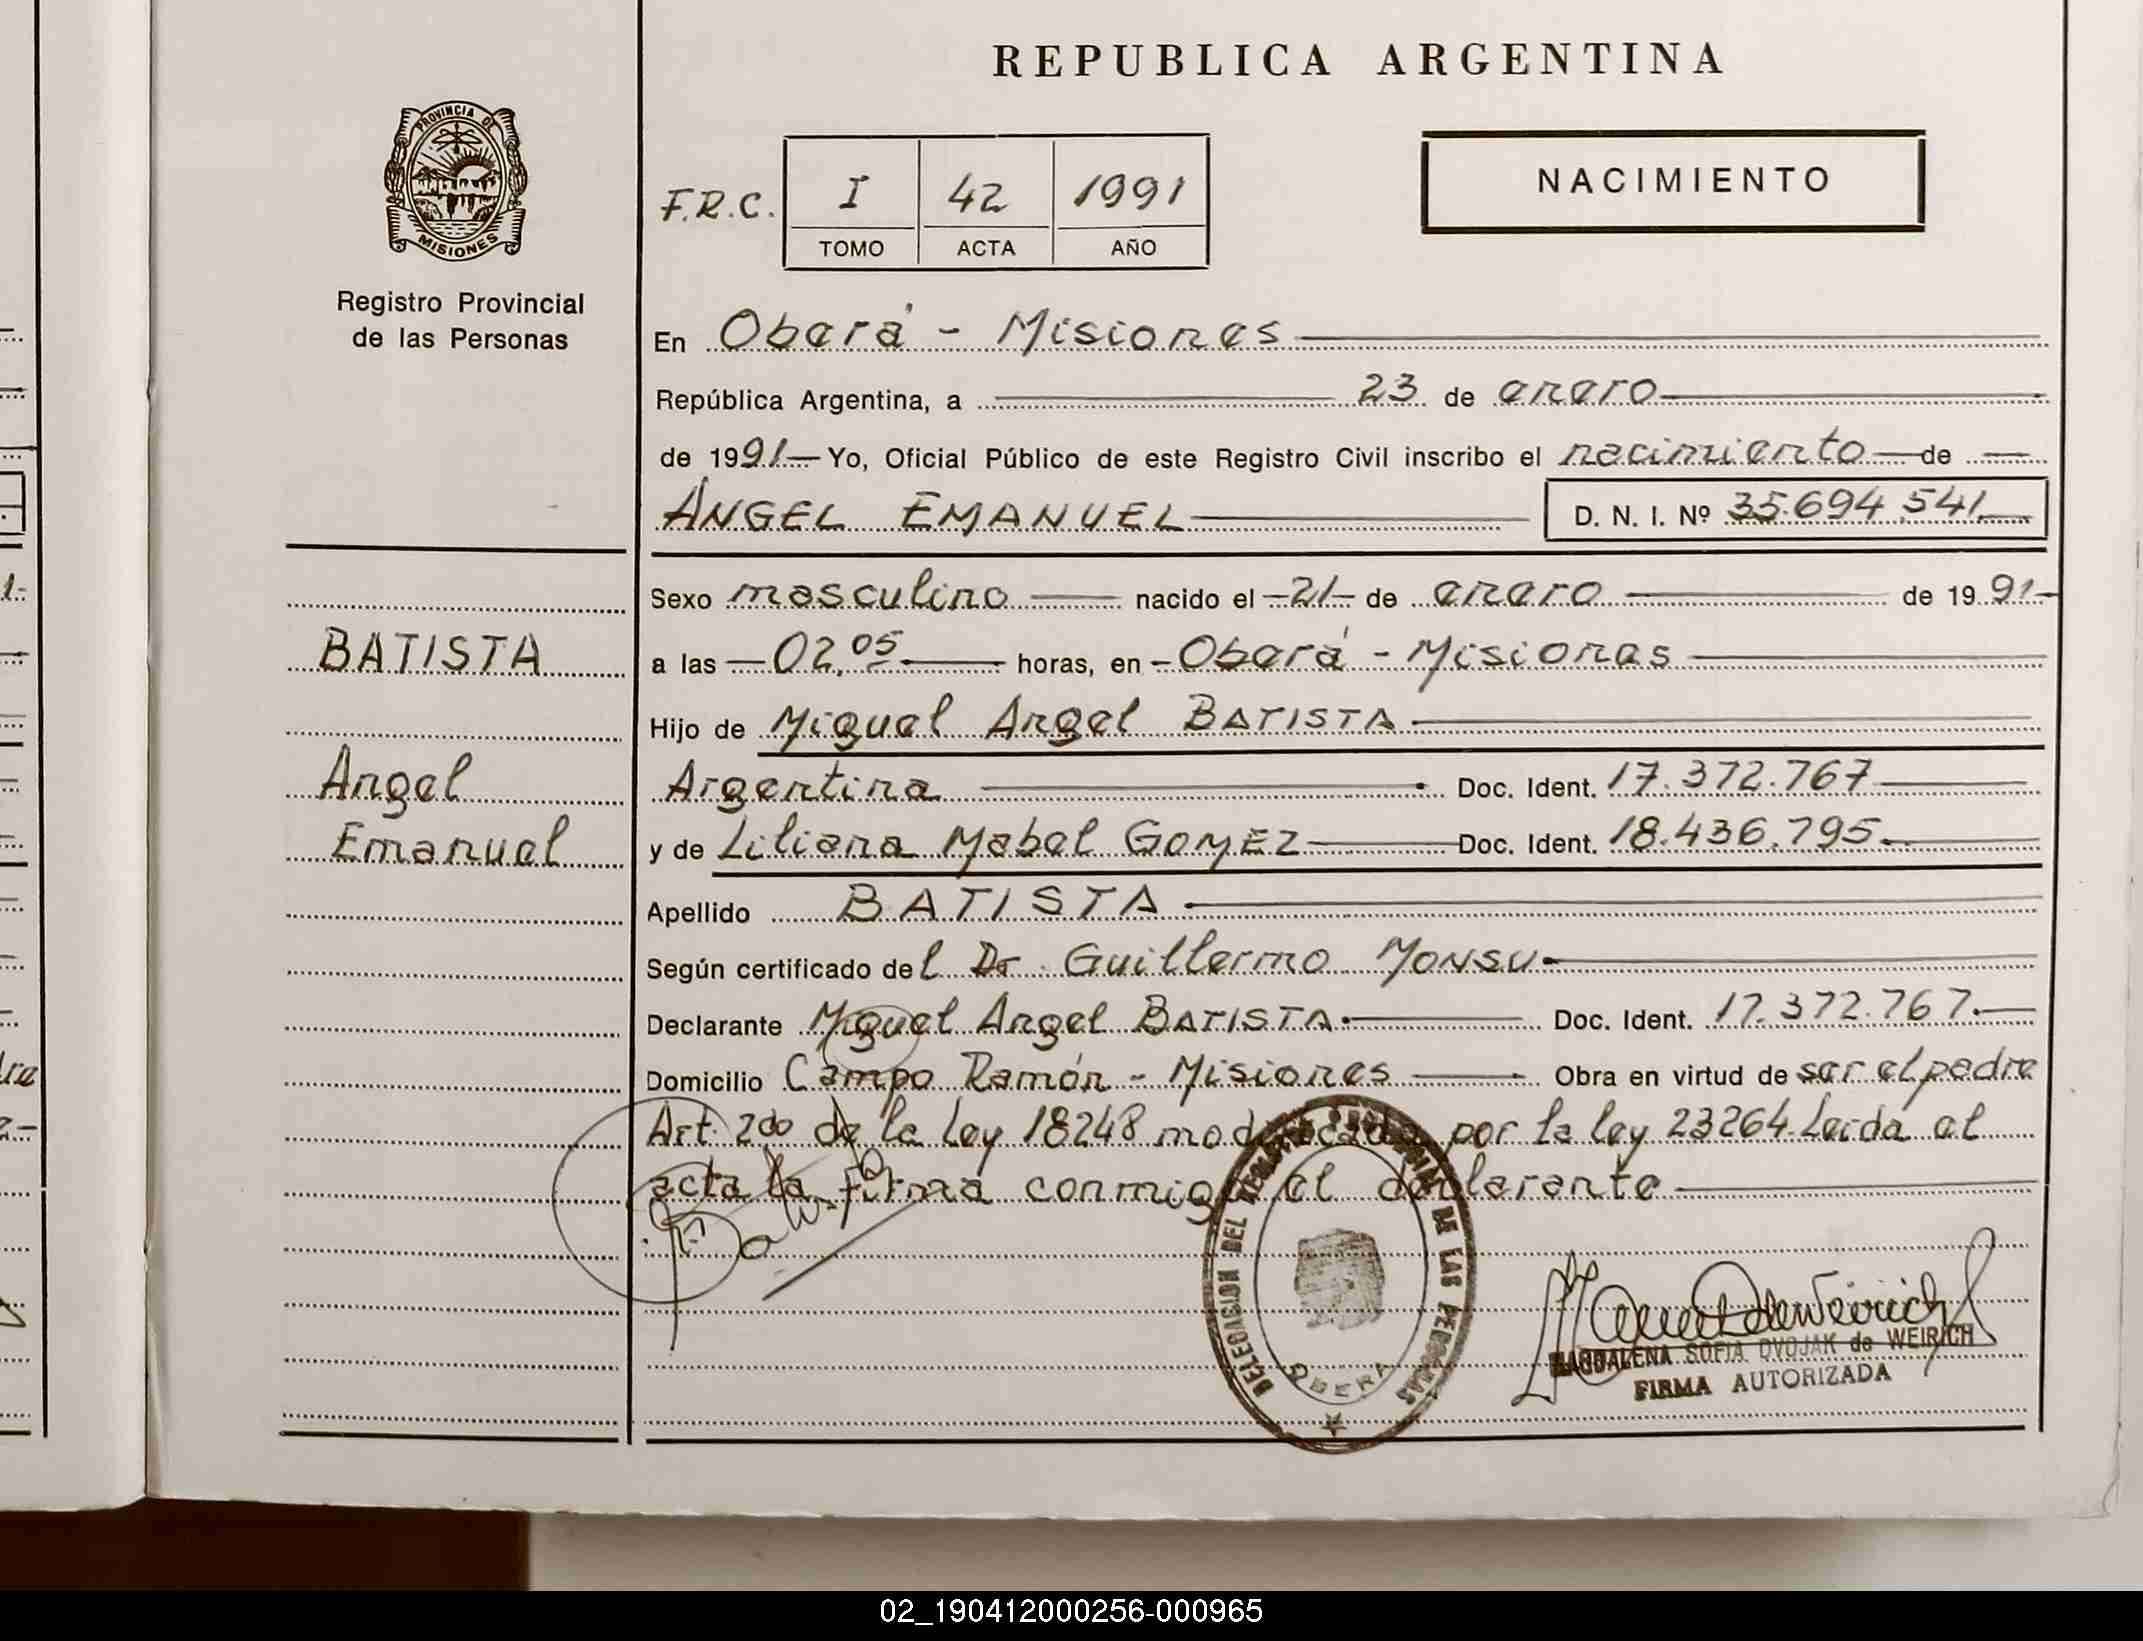 REPUBLICA ARGENTINA
PROVINCIA DE
MISIONES
Registro Provincial
de las Personas
F.R.C. I 42 1991
TOMO ACTA AÑO
NACIMIENTO
En Oberá - Misiones
República Argentina, a 23 de enero
de 1991 Yo, Oficial Público de este Registro Civil inscribo el nacimiento de
ÁNGEL EMANUEL D. N. I. Nº 35.694.541
BATISTA
Angel
Emanuel
Sexo masculino nacido el 21 de enero de 1991
a las 02,05 horas, en Oberá - Misiones
Hijo de Miguel Angel BATISTA
Argentina Doc. Ident. 17.372.767
y de Liliana Mabel GOMEZ Doc. Ident. 18.436.795
Apellido BATISTA
Según certificado del Dr. Guillermo MONSU
Declarante Miguel Angel BATISTA Doc. Ident. 17.372.767.
Domicilio Campo Ramón - Misiones Obra en virtud de ser el padre
Art. 2do de la Ley 18248 modificada por la ley 23264. Leida el
acta la firma conmigo el declarante
DELEGACION DEL REGISTRO PROVINCIAL DE LAS PERSONAS
OBERA
MAGDALENA SOFIA DVOJAK de WEIRICH
FIRMA AUTORIZADA
02_190412000256-000965